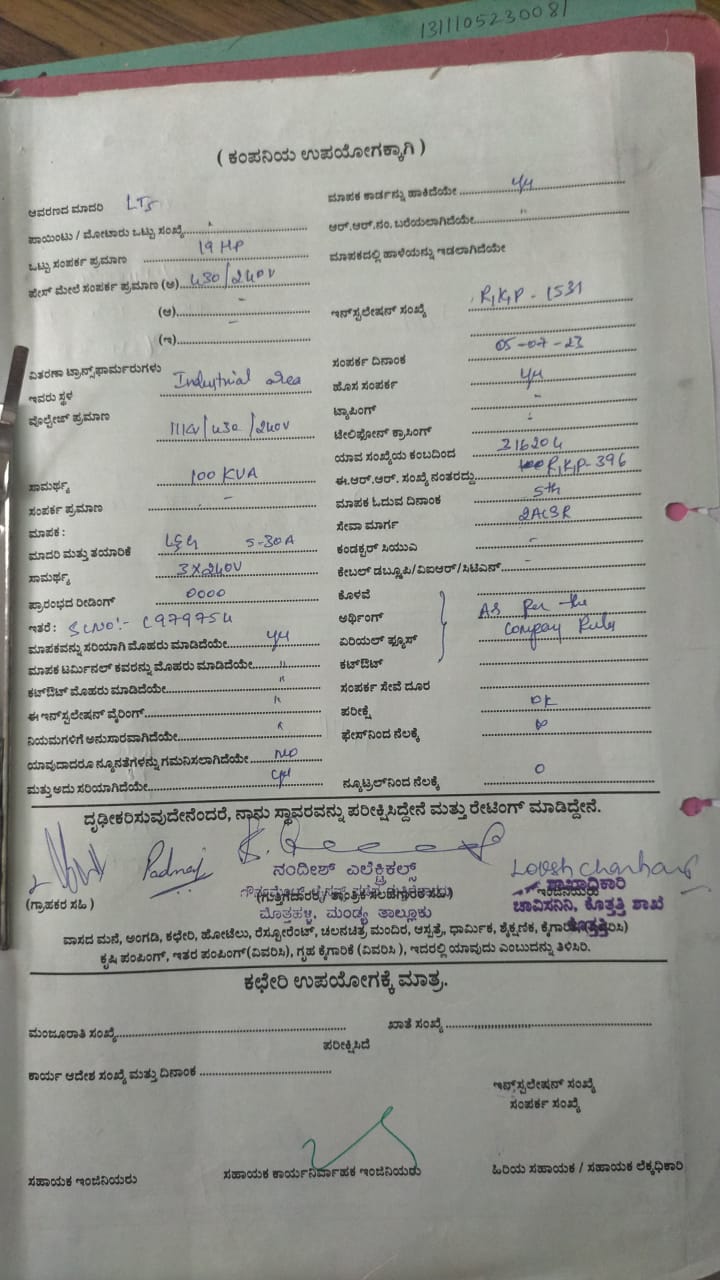 1311105230081
( ಕಂಪನಿಯ ಉಪಯೋಗಕ್ಕಾಗಿ )
ಆವರಣದ ಮಾದರಿ LT5
ಮಾಪಕ ಕಾರ್ಡನ್ನು ಹಾಕಿದೆಯೇ
ಪಾಯಿಂಟು / ಮೋಟಾರು ಒಟ್ಟು ಸಂಖ್ಯೆ
ಆರ್.ಆರ್.ನಂ. ಬರೆಯಲಾಗಿದೆಯೇ "
ಒಟ್ಟು ಸಂಪರ್ಕ ಪ್ರಮಾಣ 19 HP
ಮಾಪಕದಲ್ಲಿ ಹಾಳೆಯನ್ನು ಇಡಲಾಗಿದೆಯೇ
ಫೇಸ್ ಮೇಲೆ ಸಂಪರ್ಕ ಪ್ರಮಾಣ (ಅ) 430/240V
(ಆ) -
ಇನ್‌ಸ್ಟಲೇಷನ್ ಸಂಖ್ಯೆ R,K,P - 1531
(ಇ) -
05-07-23
ವಿತರಣಾ ಟ್ರಾನ್ಸ್‌ಫಾರ್ಮರುಗಳು
ಸಂಪರ್ಕ ದಿನಾಂಕ
ಇವರು ಸ್ಥಳ Industrial area
ಹೊಸ ಸಂಪರ್ಕ
ವೊಲ್ಟೇಜ್ ಪ್ರಮಾಣ 11KV/430/240V
ಟ್ಯಾಪಿಂಗ್ -
ಟೆಲಿಫೋನ್ ಕ್ರಾಸಿಂಗ್ -
ಯಾವ ಸಂಖ್ಯೆಯ ಕಂಬದಿಂದ 316204
ಸಾಮರ್ಥ್ಯ 100 KVA
ಈ.ಆರ್.ಆರ್. ಸಂಖ್ಯೆ ನಂತರದ್ದು R,K,P-396
ಸಂಪರ್ಕ ಪ್ರಮಾಣ -
ಮಾಪಕ ಓದುವ ದಿನಾಂಕ 5th
ಮಾಪಕ :
ಸೇವಾ ಮಾರ್ಗ 2ACSR
ಮಾದರಿ ಮತ್ತು ತಯಾರಿಕೆ L&G 5-30A
ಕಂಡಕ್ಟರ್ ಸಿಯುಎ -
ಸಾಮರ್ಥ್ಯ 3X240V
ಕೇಬಲ್ ಡಬ್ಲೂಪಿ/ವಿಐಆರ್/ಸಿಟಿಎಸ್ -
ಪ್ರಾರಂಭದ ರೀಡಿಂಗ್ 0000
ಕೊಳವೆ
ಇತರೆ : Sl.No:- C979754
ಅರ್ಥಿಂಗ್ As Per the
ಮಾಪಕವನ್ನು ಸರಿಯಾಗಿ ಮೊಹರು ಮಾಡಿದೆಯೇ
ಏರಿಯಲ್ ಫ್ಯೂಸ್ Company Rules
ಮಾಪಕ ಟರ್ಮಿನಲ್ ಕವರನ್ನು ಮೊಹರು ಮಾಡಿದೆಯೇ "
ಕಟ್‌ಔಟ್
ಕಟ್‌ಔಟ್ ಮೊಹರು ಮಾಡಿದೆಯೇ "
ಸಂಪರ್ಕ ಸೇವೆ ದೂರ
ಈ ಇನ್‌ಸ್ಟಲೇಷನ್ ವೈರಿಂಗ್ "
ಪರೀಕ್ಷೆ OK
ನಿಯಮಗಳಿಗೆ ಅನುಸಾರವಾಗಿದೆಯೇ "
ಫೇಸ್‌ನಿಂದ ನೆಲಕ್ಕೆ
ಯಾವುದಾದರೂ ನ್ಯೂನತೆಗಳನ್ನು ಗಮನಿಸಲಾಗಿದೆಯೇ NO
ಮತ್ತು ಅದು ಸರಿಯಾಗಿದೆಯೇ
ನ್ಯೂಟ್ರಲ್‌ನಿಂದ ನೆಲಕ್ಕೆ 0
ದೃಢೀಕರಿಸುವುದೇನೆಂದರೆ, ನಾನು ಸ್ಥಾವರವನ್ನು ಪರೀಕ್ಷಿಸಿದ್ದೇನೆ ಮತ್ತು ರೇಟಿಂಗ್ ಮಾಡಿದ್ದೇನೆ.
Padmaj
ನಂದೀಶ್ ಎಲೆಕ್ಟ್ರಿಕಲ್ಸ್
(ಗ್ರಾಹಕರ ಸಹಿ )
(ಗುತ್ತಿಗೆದಾರರ / ತಾಂತ್ರಿಕ ಸಲಹೆಗಾರರ ಸಹಿ)
ಶಾಖಾಧಿಕಾರಿ
ಇಂಜಿನಿಯರು
ಮೊತ್ತಹಳ್ಳಿ, ಮಂಡ್ಯ ತಾಲ್ಲೂಕು
ಚಾವಿಸನಿನಿ, ಕೊತ್ತತ್ತಿ ಶಾಖೆ
ಕೊತ್ತತ್ತಿ
ವಾಸದ ಮನೆ, ಅಂಗಡಿ, ಕಛೇರಿ, ಹೋಟೆಲು, ರೆಸ್ಟೋರೆಂಟ್, ಚಲನಚಿತ್ರ, ಮಂದಿರ, ಆಸ್ಪತ್ರೆ, ಧಾರ್ಮಿಕ, ಶೈಕ್ಷಣಿಕ,
ಕೃಷಿ ಪಂಪಿಂಗ್, ಇತರ ಪಂಪಿಂಗ್(ವಿವರಿಸಿ), ಗೃಹ ಕೈಗಾರಿಕೆ (ವಿವರಿಸಿ ), ಇದರಲ್ಲಿ ಯಾವುದು ಎಂಬುದನ್ನು ತಿಳಿಸಿರಿ.
ಕಛೇರಿ ಉಪಯೋಗಕ್ಕೆ ಮಾತ್ರ.
ಮಂಜೂರಾತಿ ಸಂಖ್ಯೆ
ಖಾತೆ ಸಂಖ್ಯೆ
ಪರೀಕ್ಷಿಸಿದೆ
ಕಾರ್ಯ ಆದೇಶ ಸಂಖ್ಯೆ ಮತ್ತು ದಿನಾಂಕ
ಇನ್‌ಸ್ಟಲೇಷನ್ ಸಂಖ್ಯೆ
ಸಂಪರ್ಕ ಸಂಖ್ಯೆ
ಸಹಾಯಕ ಇಂಜಿನಿಯರು
ಸಹಾಯಕ ಕಾರ್ಯನಿರ್ವಾಹಕ ಇಂಜಿನಿಯರು
ಹಿರಿಯ ಸಹಾಯಕ / ಸಹಾಯಕ ಲೆಕ್ಕಧಿಕಾರಿ